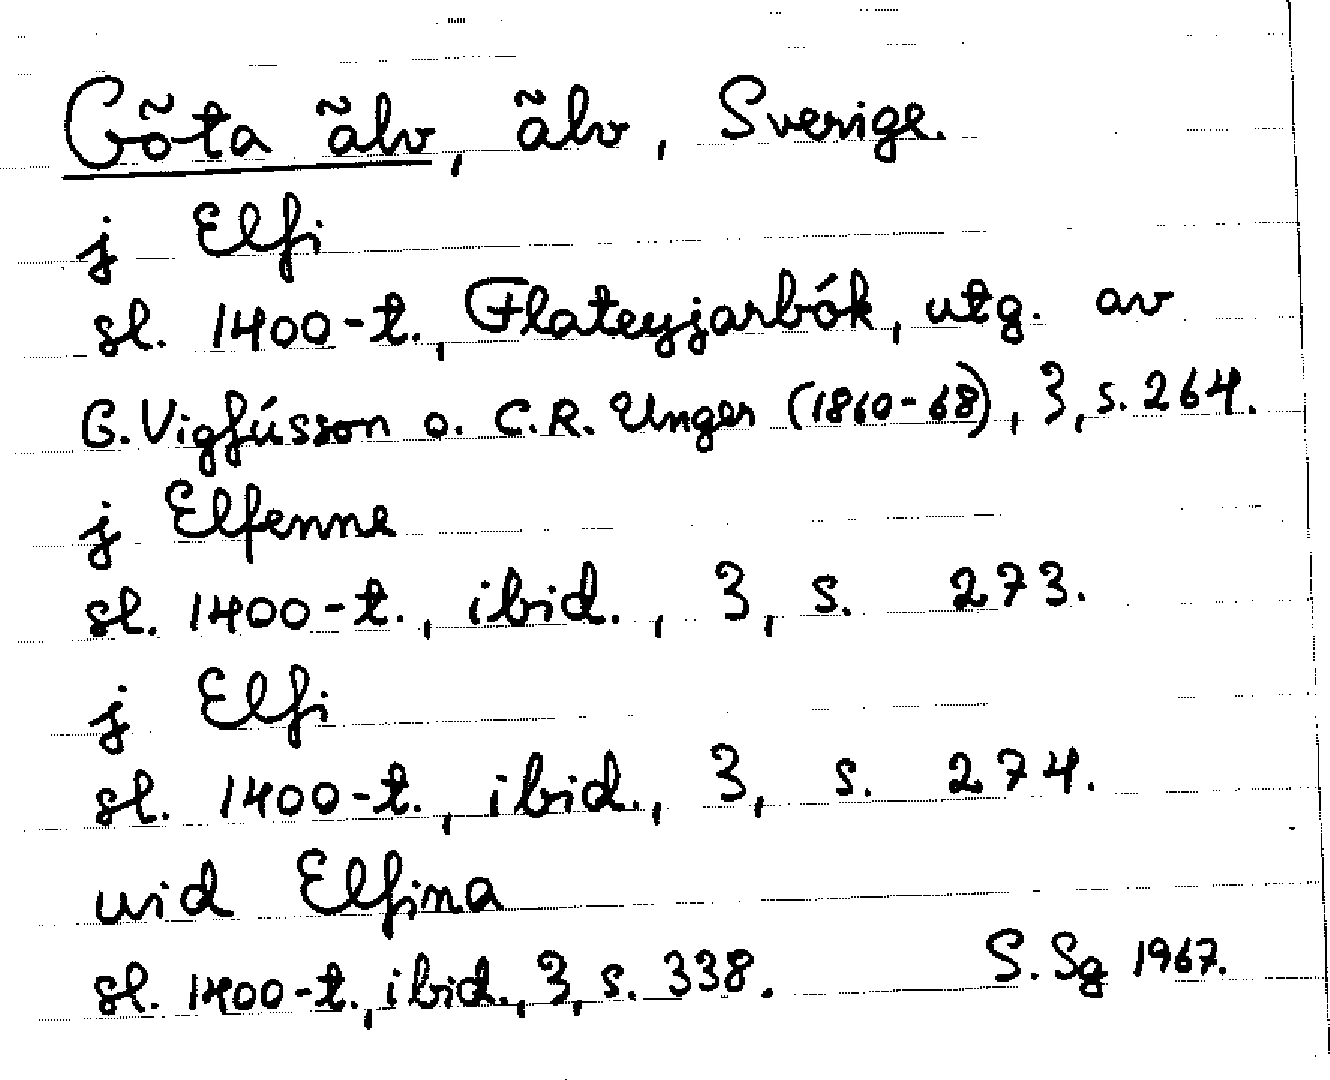 Göta älv, älv, Sverige.
j Elfi
sl. 1400-t., Flateyjarbók, utg. av
G. Vigfússon o. C.R. Unger (1860-68), 3, s. 264.
j Elfenne
sl. 1400-t., ibid., 3, s. 273.
j Elfi
sl. 1400-t., ibid., 3, s. 274.
uid Elfina
sl. 1400-t., ibid., 3, s. 338. S. Sg 1967.